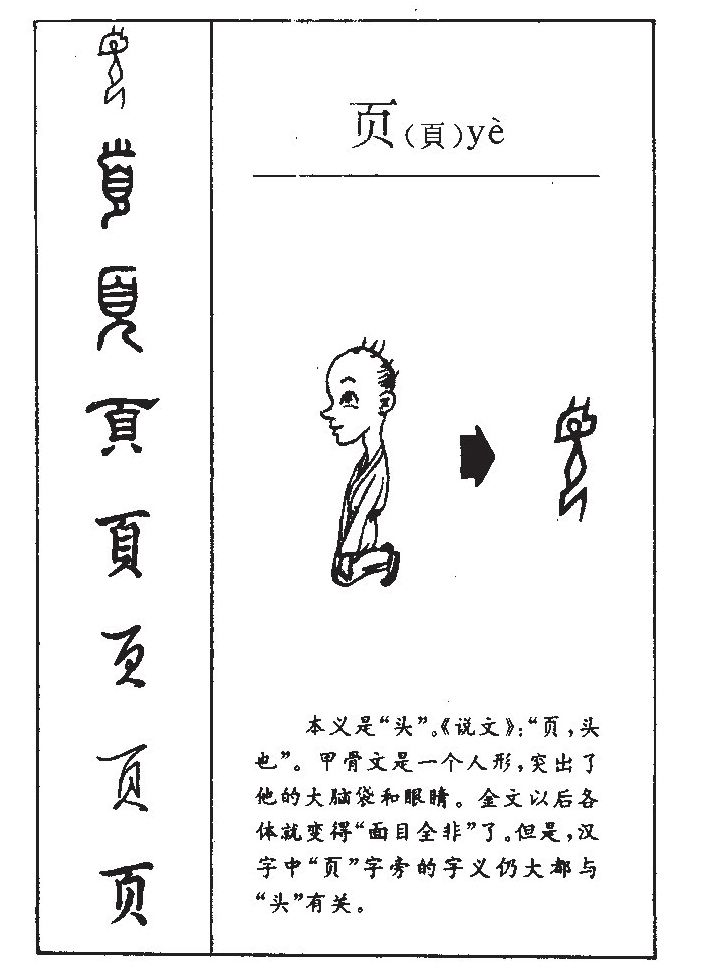 页(頁)yè
頁
頁
页
页
页
本义是“头”。《说文》:“页,头
也”。甲骨文是一个人形,突出了
他的大脑袋和眼睛。金文以后各
体就变得“面目全非”了。但是,汉
字中“页”字旁的字义仍大都与
“头”有关。